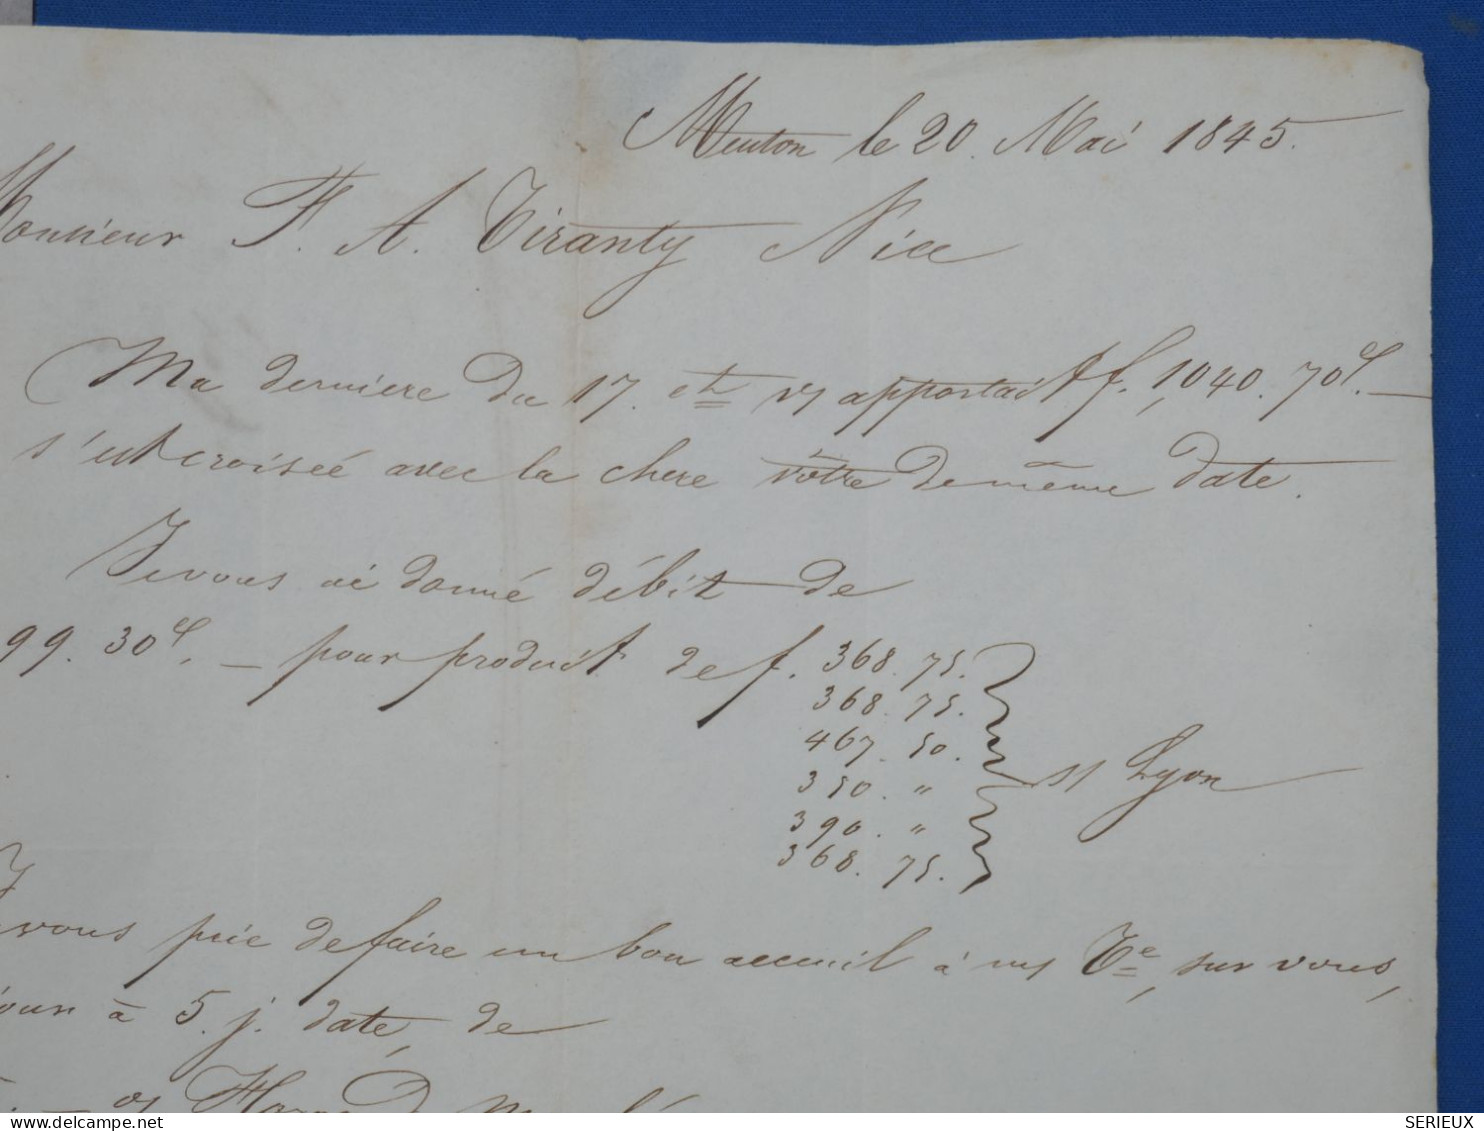 Menton le 20. Mai 1845.
Monsieur F. A. Tiranty Nice
Ma derniere du 17. ct vs apportait f. 1,040. 70c. —
s'est croiseé avec la chere vôtre de même date.
Je vous ai donné débit de
99. 30c. — pour produit de f. 368. 75.
368. 75.
467. 50.
350. "
390. "
368. 75.
s/ Lyon
Je vous prie de faire un bon accueil à mes Te, sur vous,
jour à 5. j. date, de
SERIEUX